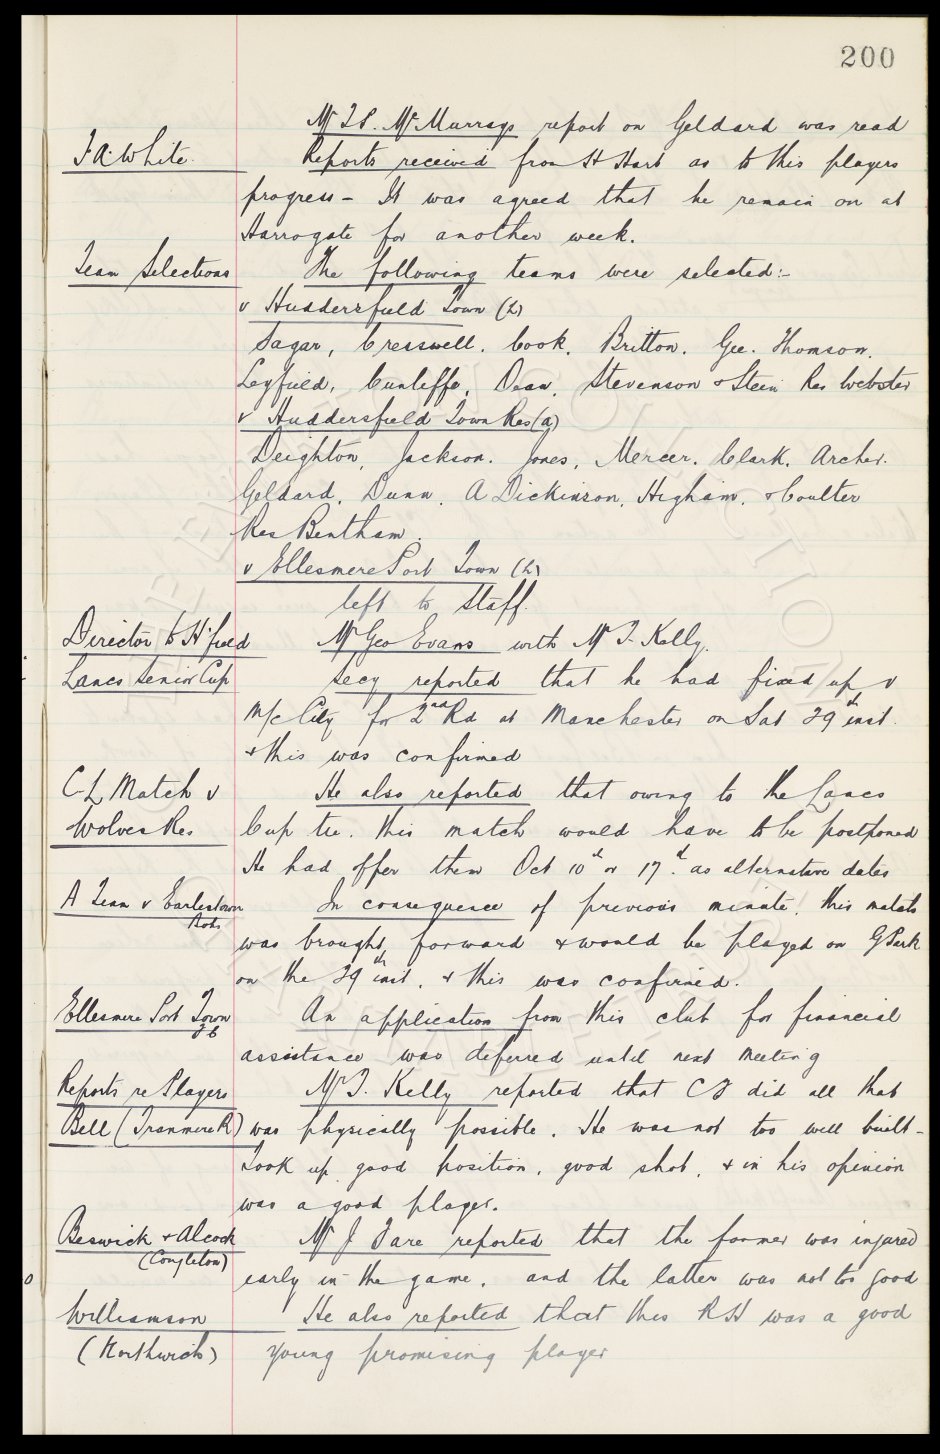 200
Mr T.P. McMurrays report on Geldard was read
F.A. White. Reports received from H Hart as to this players
progress - It was agreed that he remain on at
Harrogate for another week.
Team Selections The following teams were selected:-
v Huddersfield Town (L)
Sagar, Cresswell. Cook. Britton. Gee. Thomson.
Leyfield, Cunliffe, Dean, Stevenson & Stein Res Webster
v Huddersfield Town Res (a)
Deighton, Jackson. Jones, Mercer. Clark. Archer.
Geldard, Dunn, A Dickinson, Higham, & Coulter
Res Bentham.
v Ellesmere Port Town (L)
left to Staff.
Director to H'field Mr Geo Evans with Mr T. Kelly.
Lancs Senior Cup Secy reported that he had fixed up v
M/c City for 2nd Rd at Manchester on Sat 29th inst.
& this was confirmed
C-L Match v He also reported that owing to the Lancs
Wolves Res Cup tie. this match would have to be postponed
He had offer them Oct 10th or 17th. as alternative dates
A Team v Earlestown In consequence of previous minute, this match
Bohs
was brought forward & would be played on G Park
on the 29th inst. & this was confirmed.
Ellesmere Port Town An application from this club for financial
F C
assistance was deferred until next meeting
Reports re Players Mr T. Kelly reported that CF did all that
Bell (Tranmere R) was physically possible. He was not too well built -
Took up good position, good shot, & in his opinion
was a good player.
Beswick & Alcock Mr J Fare reported that the former was injured
(Congleton)
early in the game. and the latter was not too good
Williamson He also reported that this RH was a good
(Northwich) young promising player